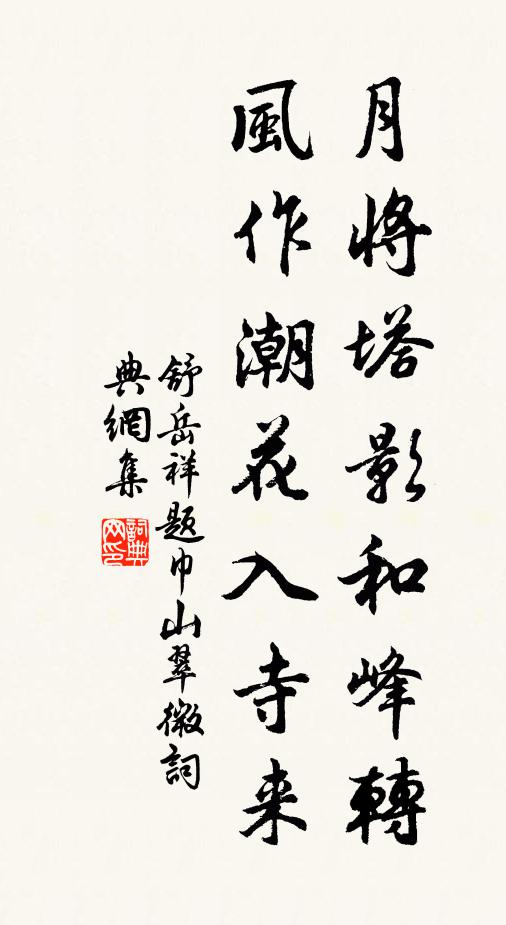 月將塔影和峰轉
風作潮花入寺来
舒岳祥题巾山翠微詞
典網集
詞典网印